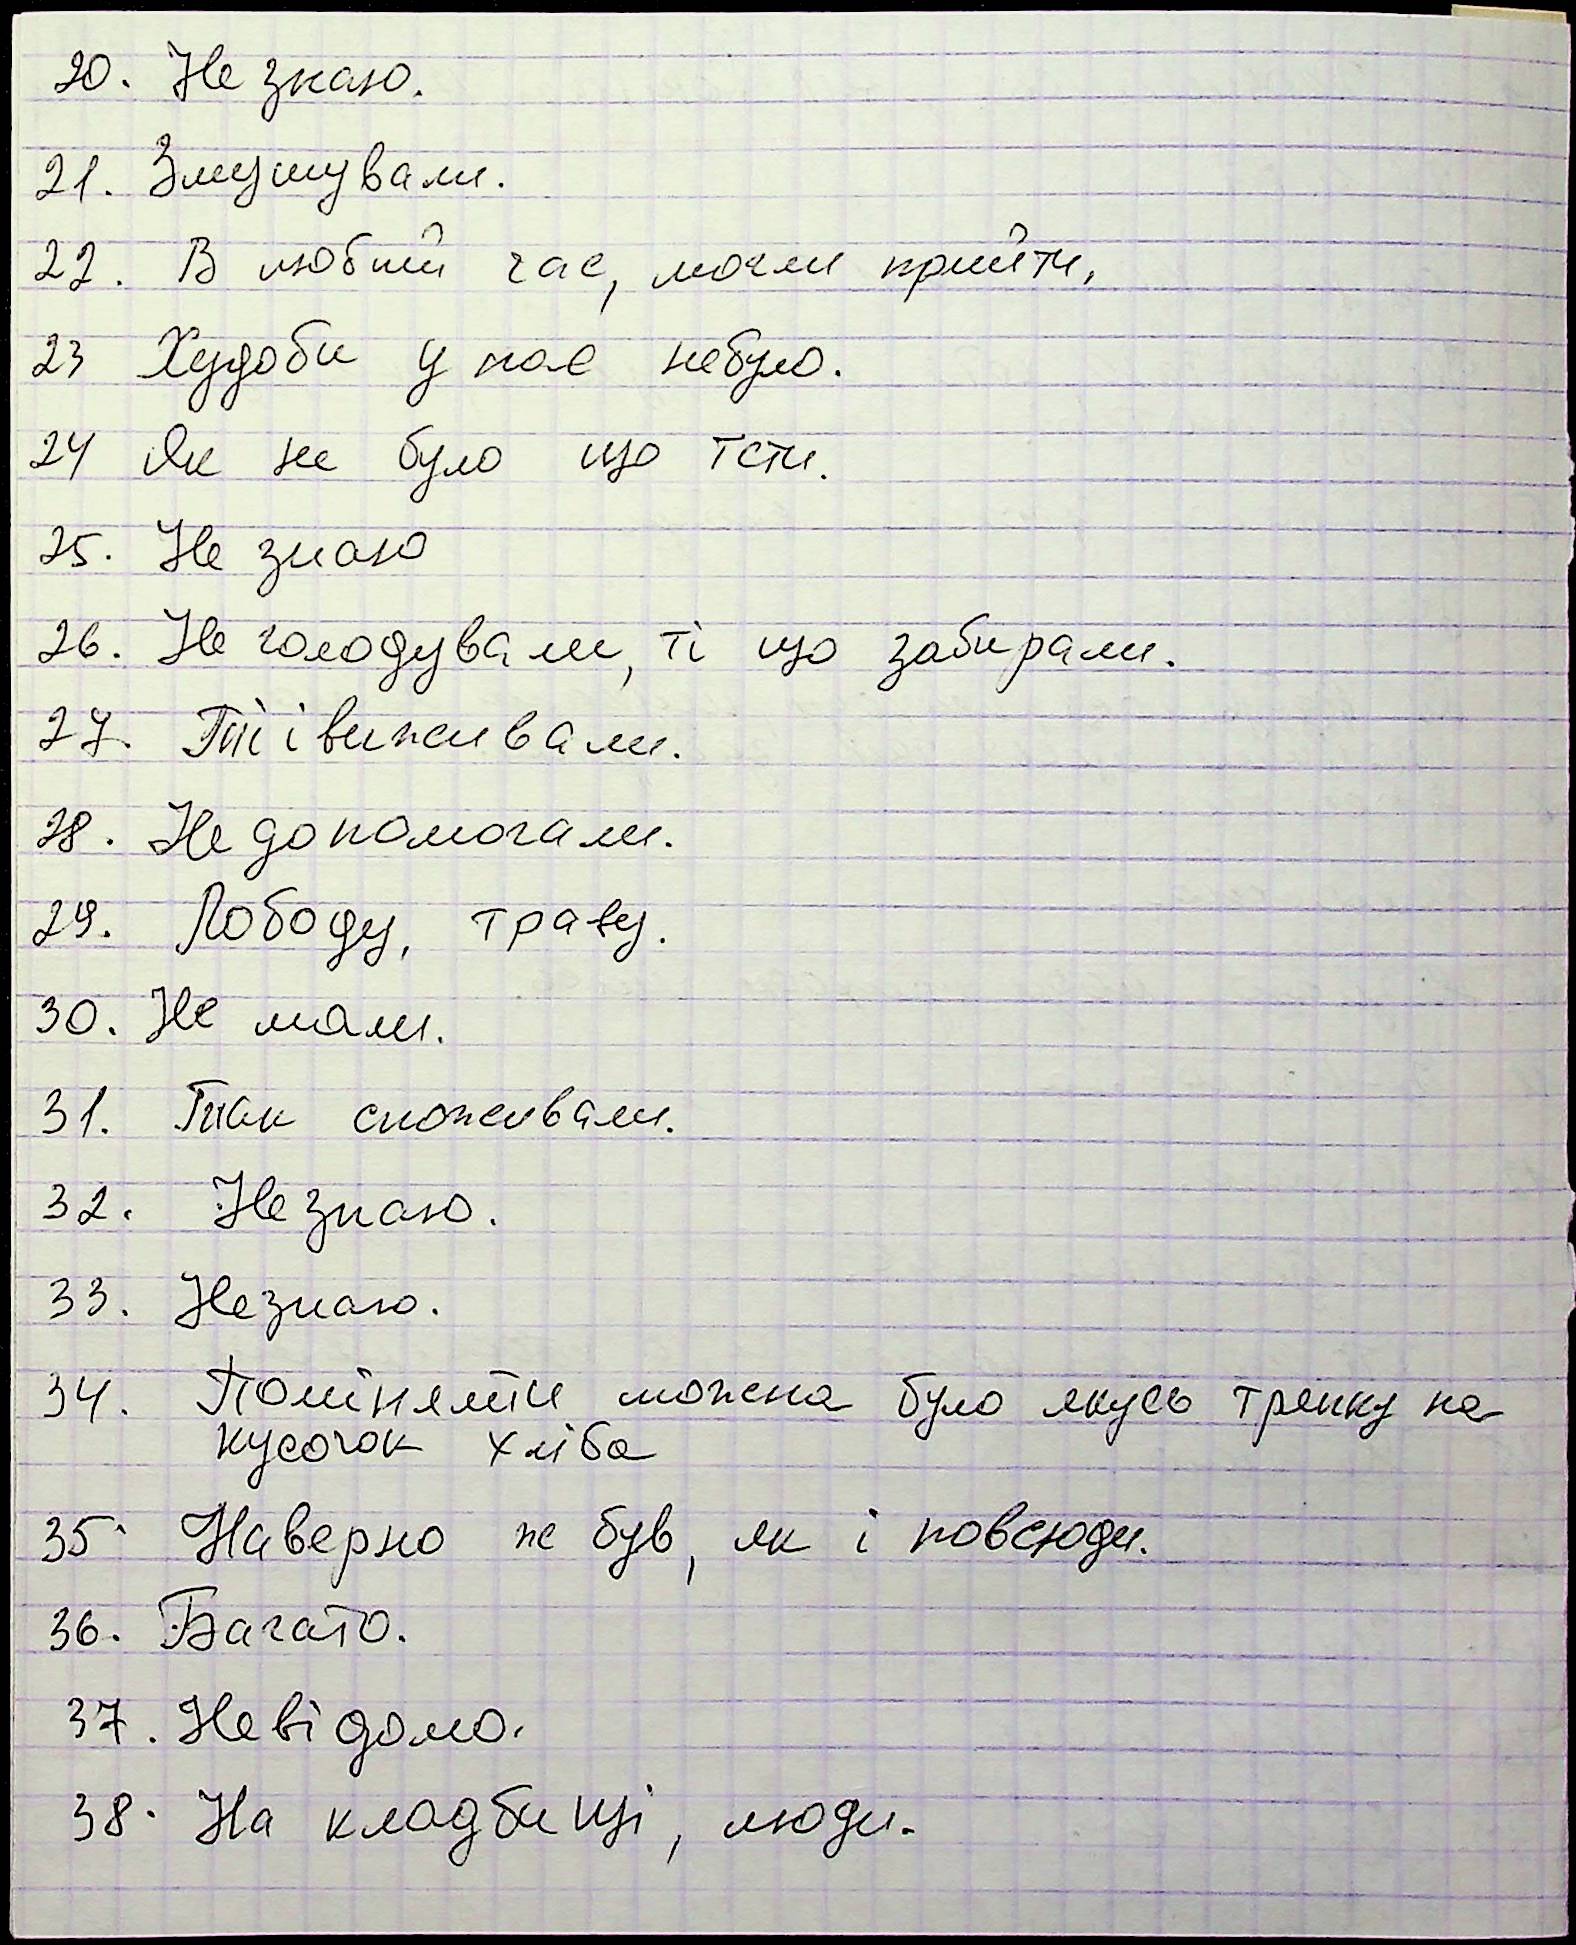 20. Не знаю.
21. Змушували.
22. В любий час, могли прийти.
23 Худоби у нас небуло.
24 Як не було що їсти.
25. Не знаю
26. Не голодували, ті що забирали.
27. Ті і виживали.
28. Не допомогали.
29. Лободу, траву.
30. Не мали.
31. Так споживали.
32. Не знаю.
33. Незнаю.
34. Поміняти можна було якусь тряпку на
кусочок хліба
35. Наверно же був, як і повсюди.
36. Багато.
37. Невідомо.
38. На кладбищі, люди.